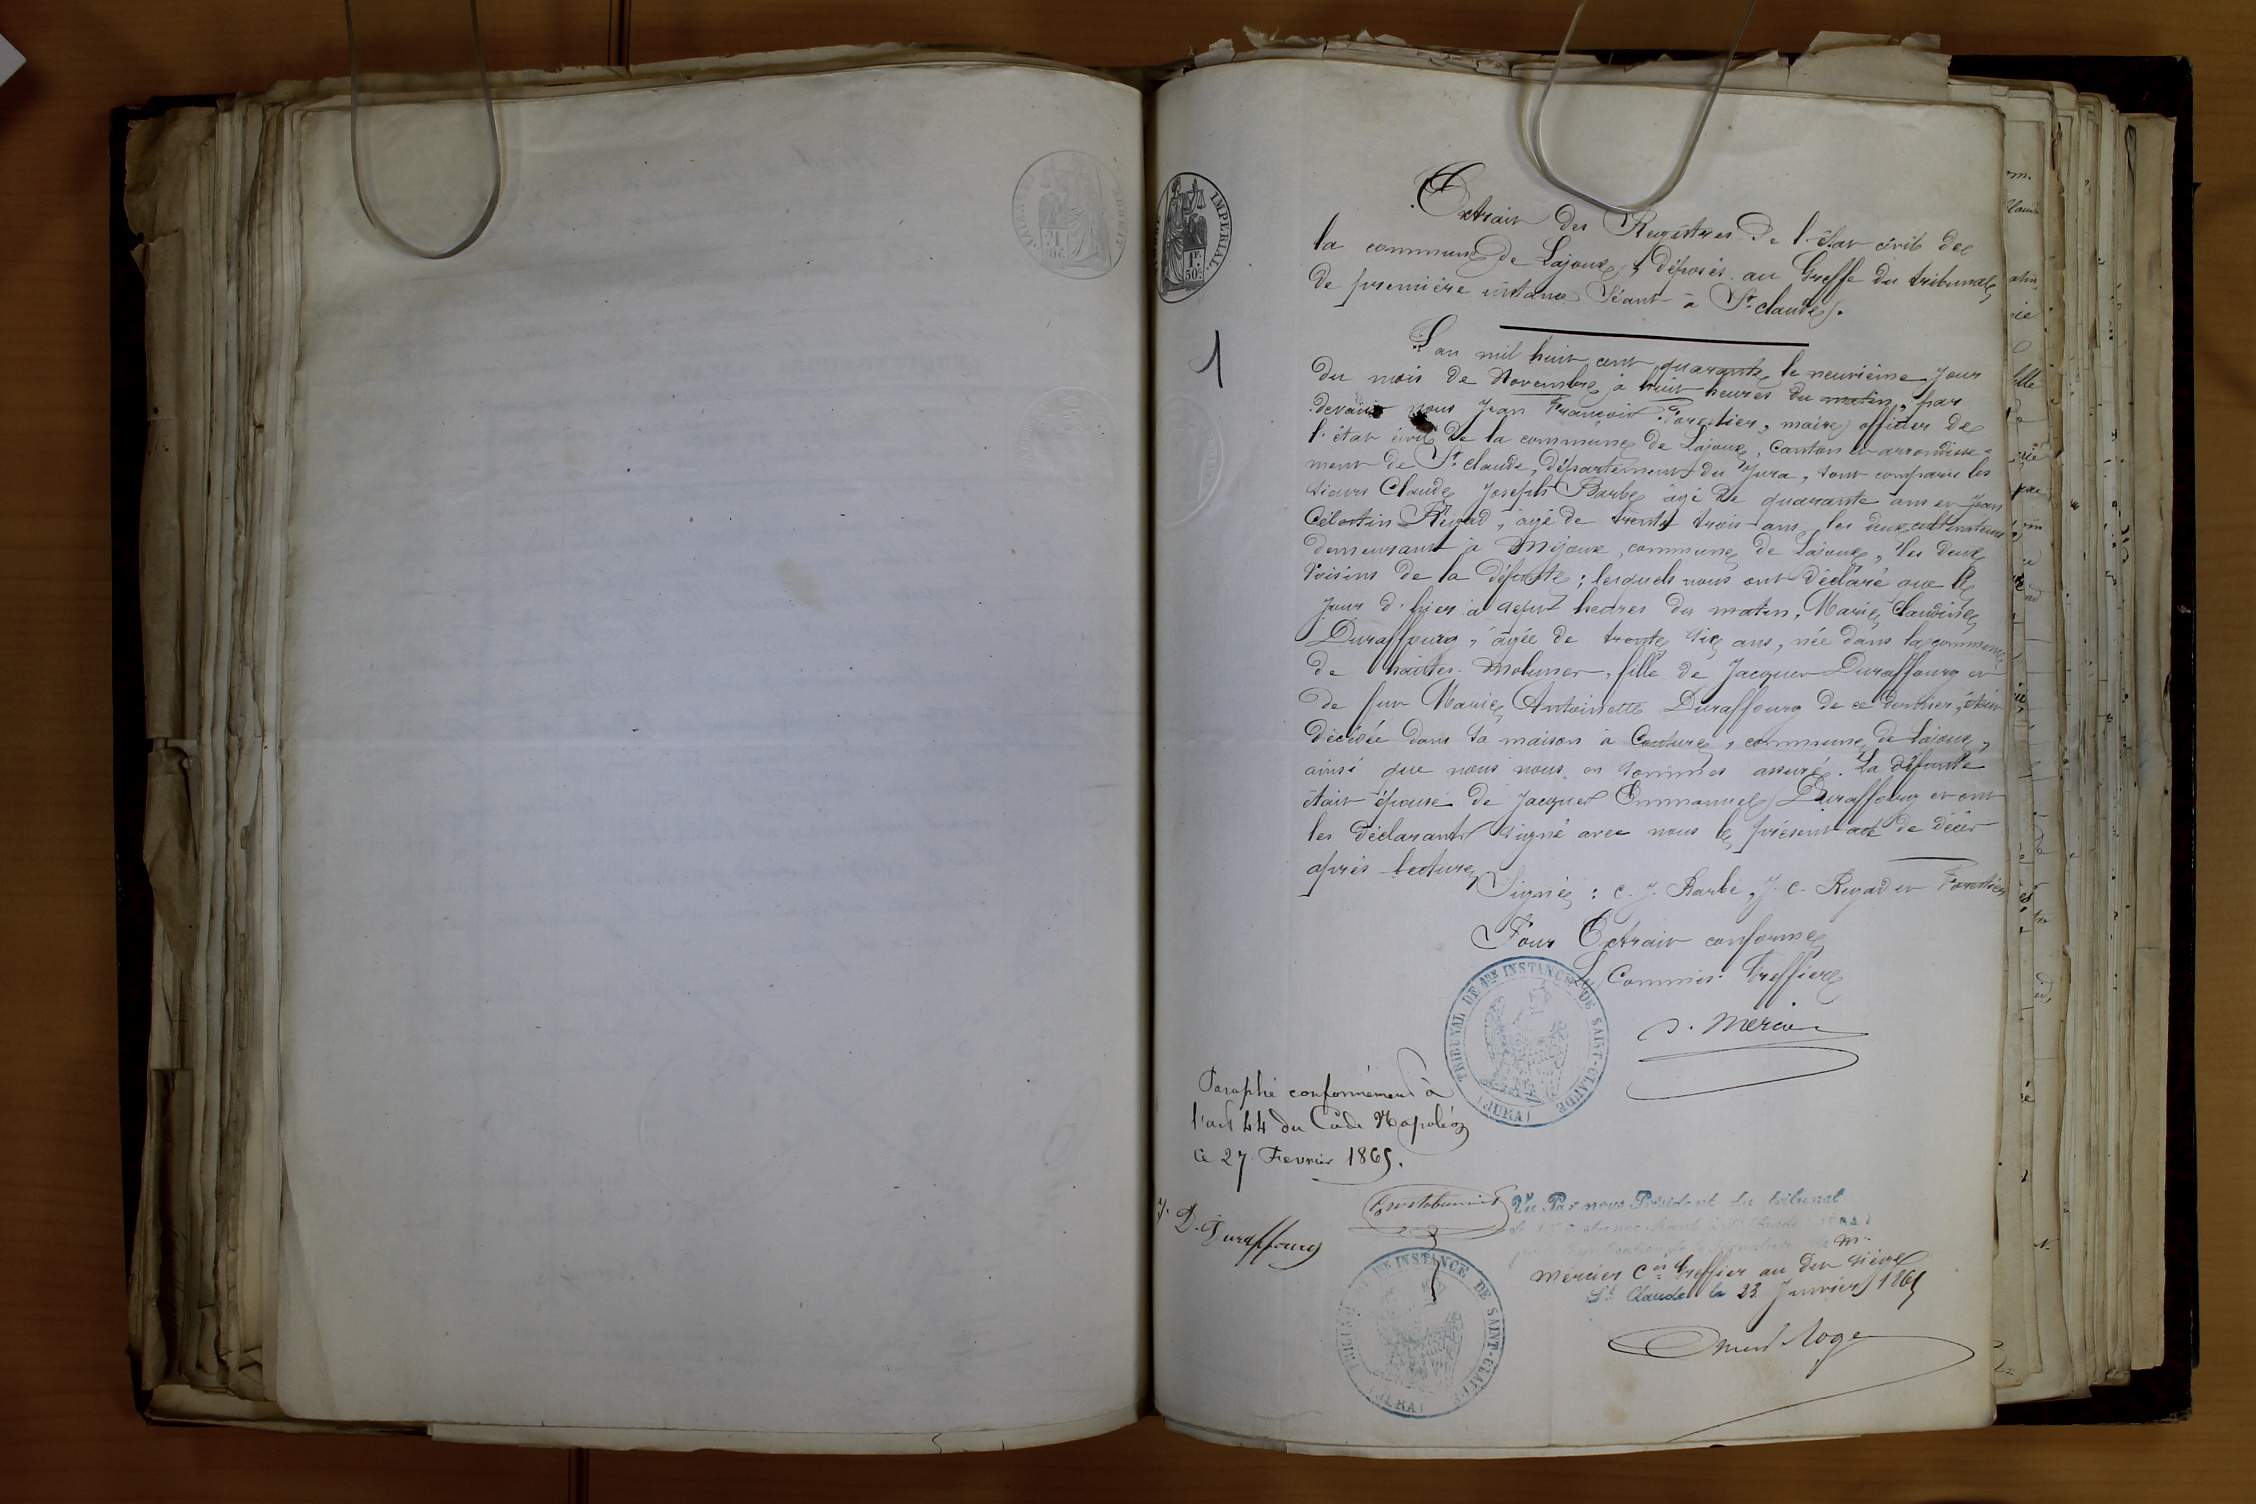 IMPERIAL.
1F.
50c.
Extrait des Registres de l'état civil de
la commune de Lajoux, déposés au Greffe du tribunal
de première instance Séant à St. claude.
1
L'an mil huit cent quarante le neuvième jour
du mois de Novembre à huit heures du matin, par
devant nous Jean François Forestier, maire officier de
l'état civil de la commune de Lajoux, Canton et arrondisse-
ment de St. claude, département du Jura, sont comparus les
sieurs Claude Joseph Barbe âgé de quarante ans et Jean
Célestin Regad, âgé de trente trois ans, les deux cultivateurs
demeurant à Mijoux, commune de Lajoux, les deux
voisins de la défunte; lesquels nous ont déclaré que le
jour d'hier à sept heures du matin, Marie Claudine
Duraffourg, âgée de trente six ans, née dans la commune
de hautes-Molunes, fille de Jacques Duraffourg et
de fue Marie Antoinette Duraffourg de ce dernier, était
décédée dans sa maison à Couture, commune de Lajoux,
ainsi que nous nous en sommes assuré. La défunte
était épouse de Jacques Emmanuel Duraffourg et ont
les déclarants signé avec nous le présent acte de décès
après lecture
Signés : C. J. Barbe, J. C. Regad et Forestier
Pour Extrait conforme
Le Commis-Greffier
Mercier
TRIBUNAL DE 1RE INSTANCE DE SAINT-CLAUDE
(JURA)
Paraphé conformément à
l'art 44 du Code Napoléon
ce 27 Fevrier 1865.
J. D. Duraffourg
Vu Par nous Président du tribunal
Mr.
Mercier Cis Greffier au dit siège
St. Claude le 23 Janvier 1865
TRIBUNAL DE 1RE INSTANCE DE SAINT-CLAUDE
(JURA)